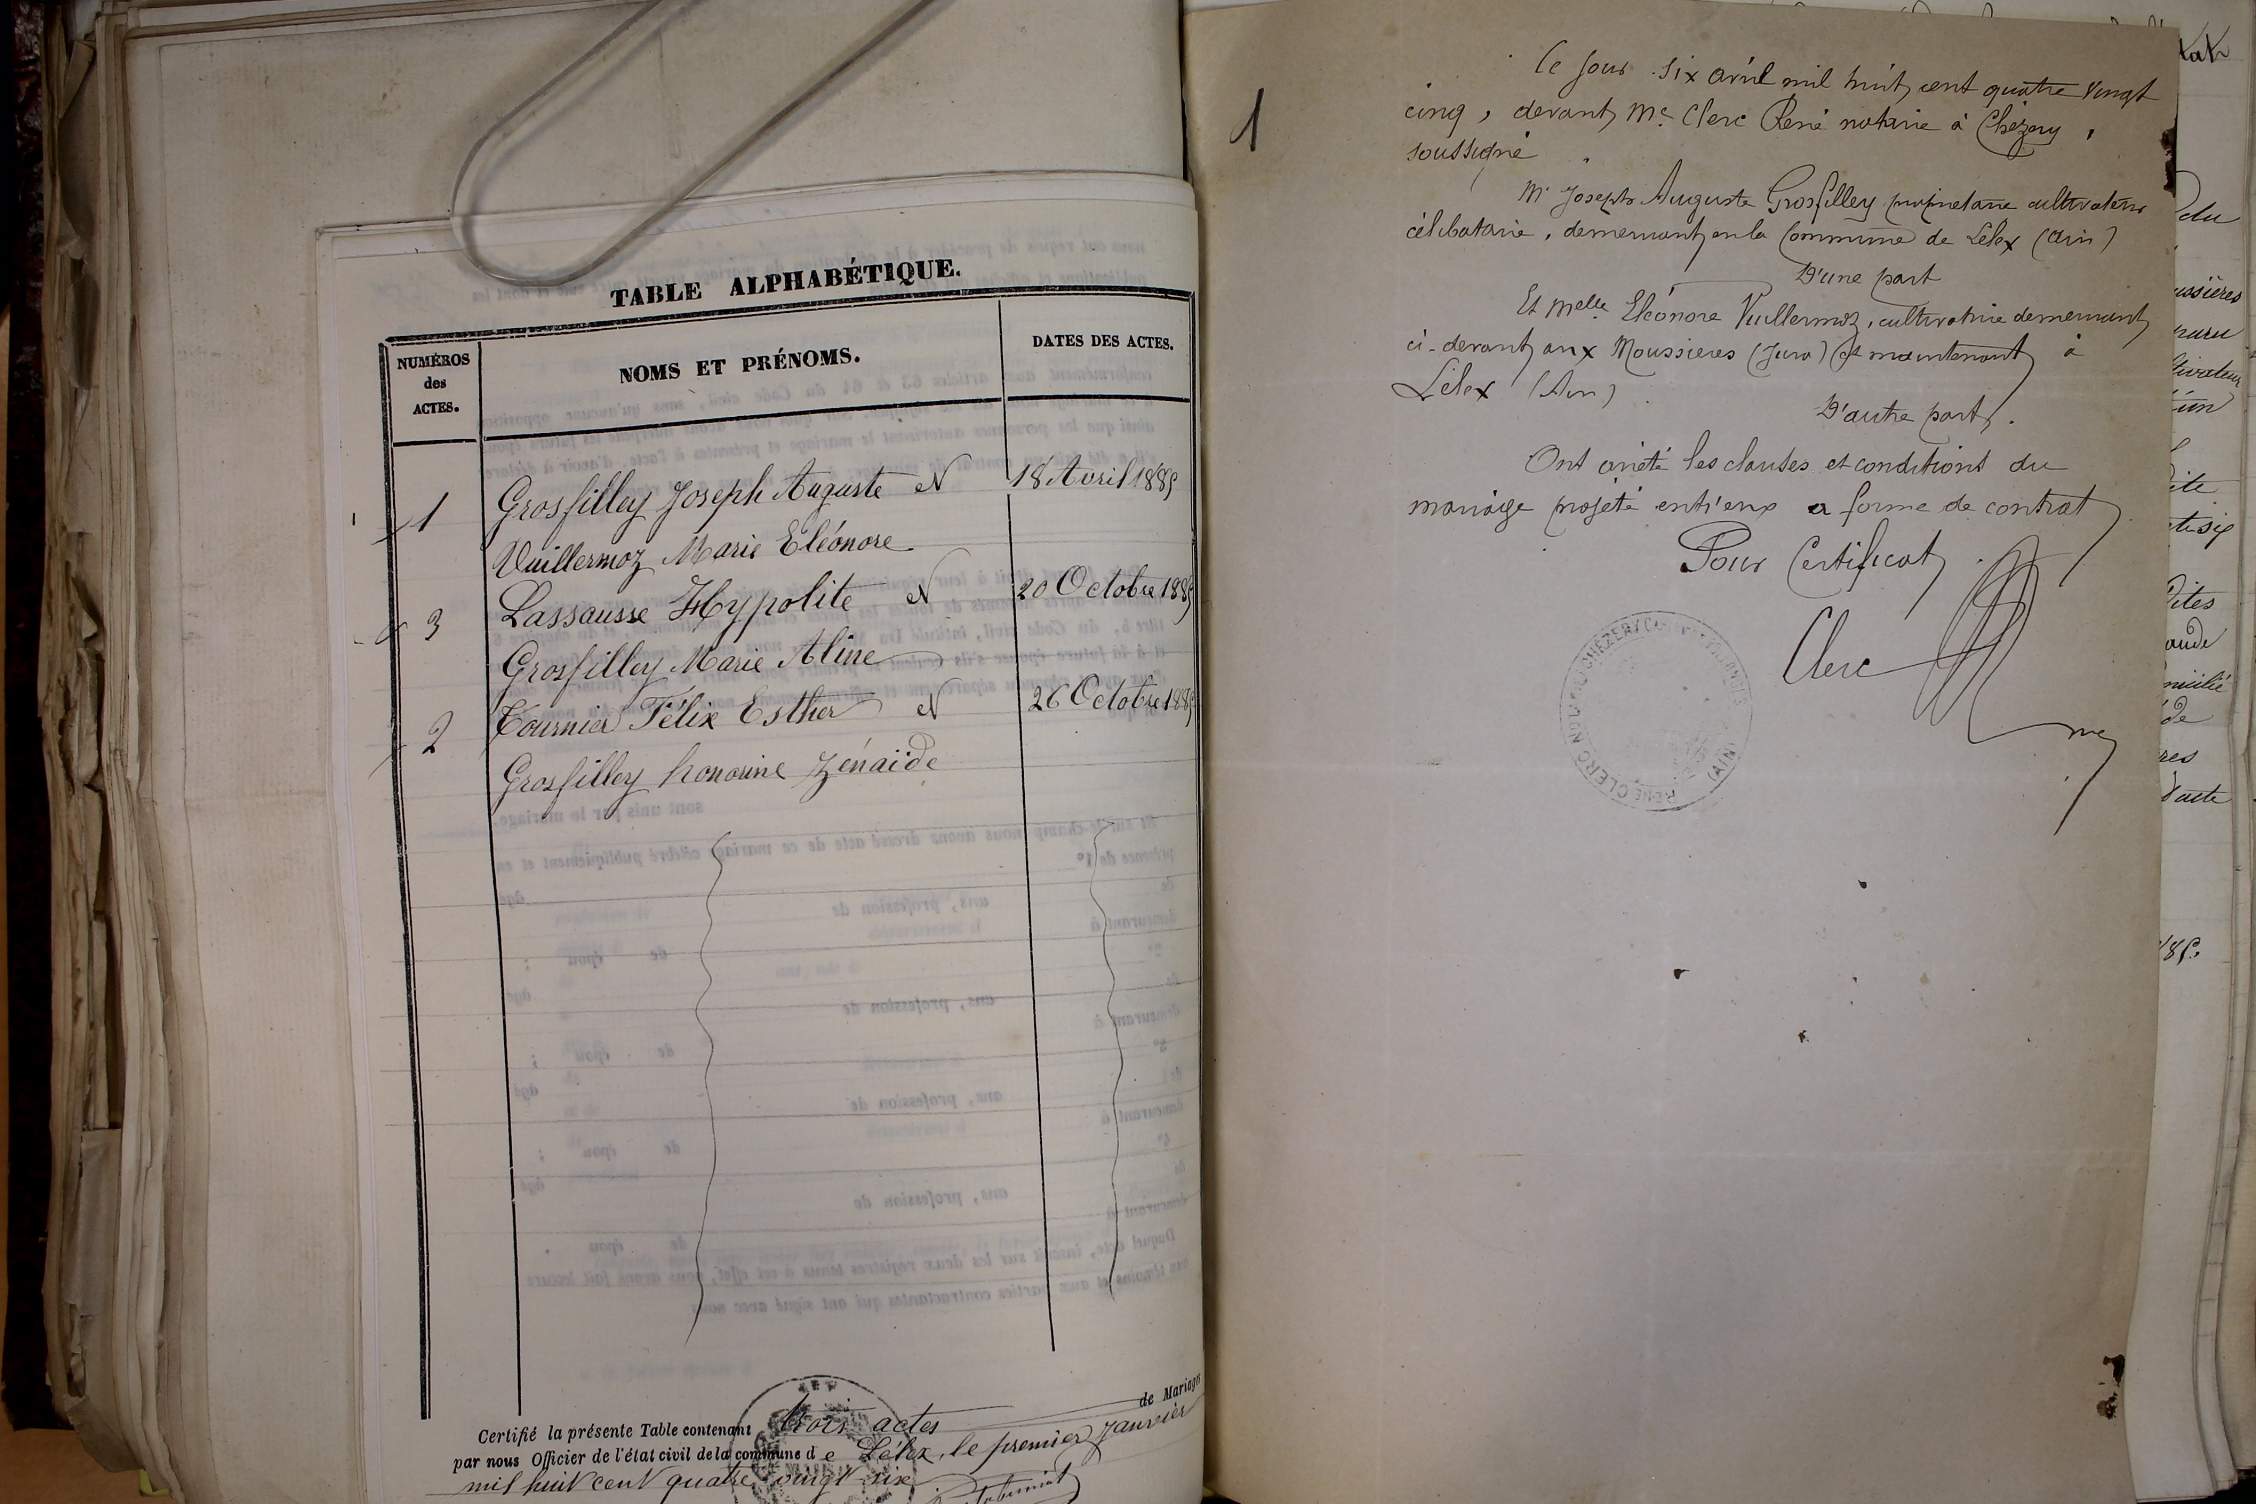 TABLE ALPHABÉTIQUE.
NUMÉROS
des
ACTES.
NOMS ET PRÉNOMS.
DATES DES ACTES.
1 Grosfilley Joseph Auguste et 18 Avril 1885
Vuillermoz Marie Eléonore
3 Lassausse Hypolite et 20 Octobre 1885
Grosfilley Marie Aline
2 Tournier Félix Esther et 26 Octobre 1885
Grosfilley honorine Zénaïde
Certifié la présente Table contenant trois actes de Mariages
par nous Officier de l'état civil de la commune de Lélex, le premier Janvier
mil huit cent quatre vingt six
1
Ce jour six avril mil huit cent quatre vingt
cinq, devant Me Clerc René notaire à Chézery,
soussigné
Mr Joseph Auguste Grosfilley propriétaire cultivateur
célibataire, demeurant en la commune de Lélex (Ain)
D'une part
Et Melle Eléonore Vuillermoz, cultivatrice demeurant
ci-devant aux Moussières (Jura) et maintenant à
Lélex (Ain)
D'autre part.
Ont arrêté les clauses et conditions du
mariage projeté entr'eux a forme de contrat
Pour Certificat
Clerc
RENÉ CLERC NOTAIRE À CHÉZERY
(AIN)
ussières
ite
et six
dites
aude
micilié
de
res
d'acte